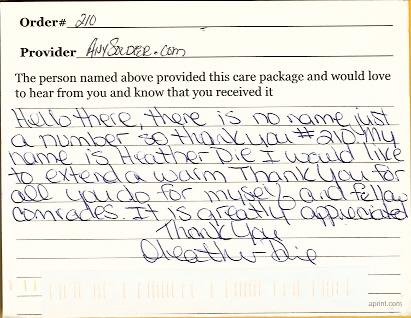 Order# 210
Provider AnySoldier.com
The person named above provided this care package and would love
to hear from you and know that you received it
Hello there, there is no name just
a number so thank you #210. My
name is Heather Die I would like
to extend a warm Thank You for
all you do for myself and fellow
comrades. It is greatly appreciated
Thank You
Heather Die
aprint.com